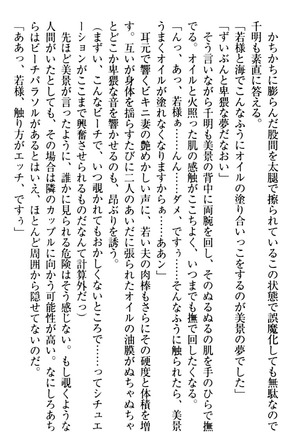 かちかちに膨らんだ股間を太腿で擦られているこの状態で誤魔化しても無駄なので、
千明も素直に答える。
「若様と海でこんなふうにオイルの塗り合いっこをするのが美景の夢でした」
「ずいぶんと卑猥な夢だなおい」
そう言いながら千明も美景の背中に両腕を回し、そのぬるぬるの肌を手のひらで撫で
ます。オイルと火照った肌の感触がここちよく、いつまでも撫で回したくなる。
「んっ、あっ、若様ぁ……んん……ダメ、ですぅ……そんなふうに触られたら、美景
うまくオイルが塗れなくなりますからぁ……ああン」
耳元で響くビキニ妻の艶めかしい声に、若い夫の肉棒もさらにその硬度と体積を増
す。互いが身体を揺らすたびに二人のあいだに張られたオイルの油膜がぬちゃぬちゃ
とどこか卑猥な音を響かせるのも、昂ぶりを誘う。
（まずい、こんなビーチで、いつ覗かれてもおかしくないところで……ってシチュエ
ーションがここまで興奮させられるものだなんて計算外だっ）
先ほど美景が言ったように、誰かに見られる危険はそう感じない。もし覗くような
人間がいたとしても、その場合は隣のカップルに向かう可能性が高い。なにしろあち
らはビーチパラソルがあるとはいえ、ほとんど周囲から隠せてないのだ。
「ああっ、若様、触り方がエッチ、ですぅ」